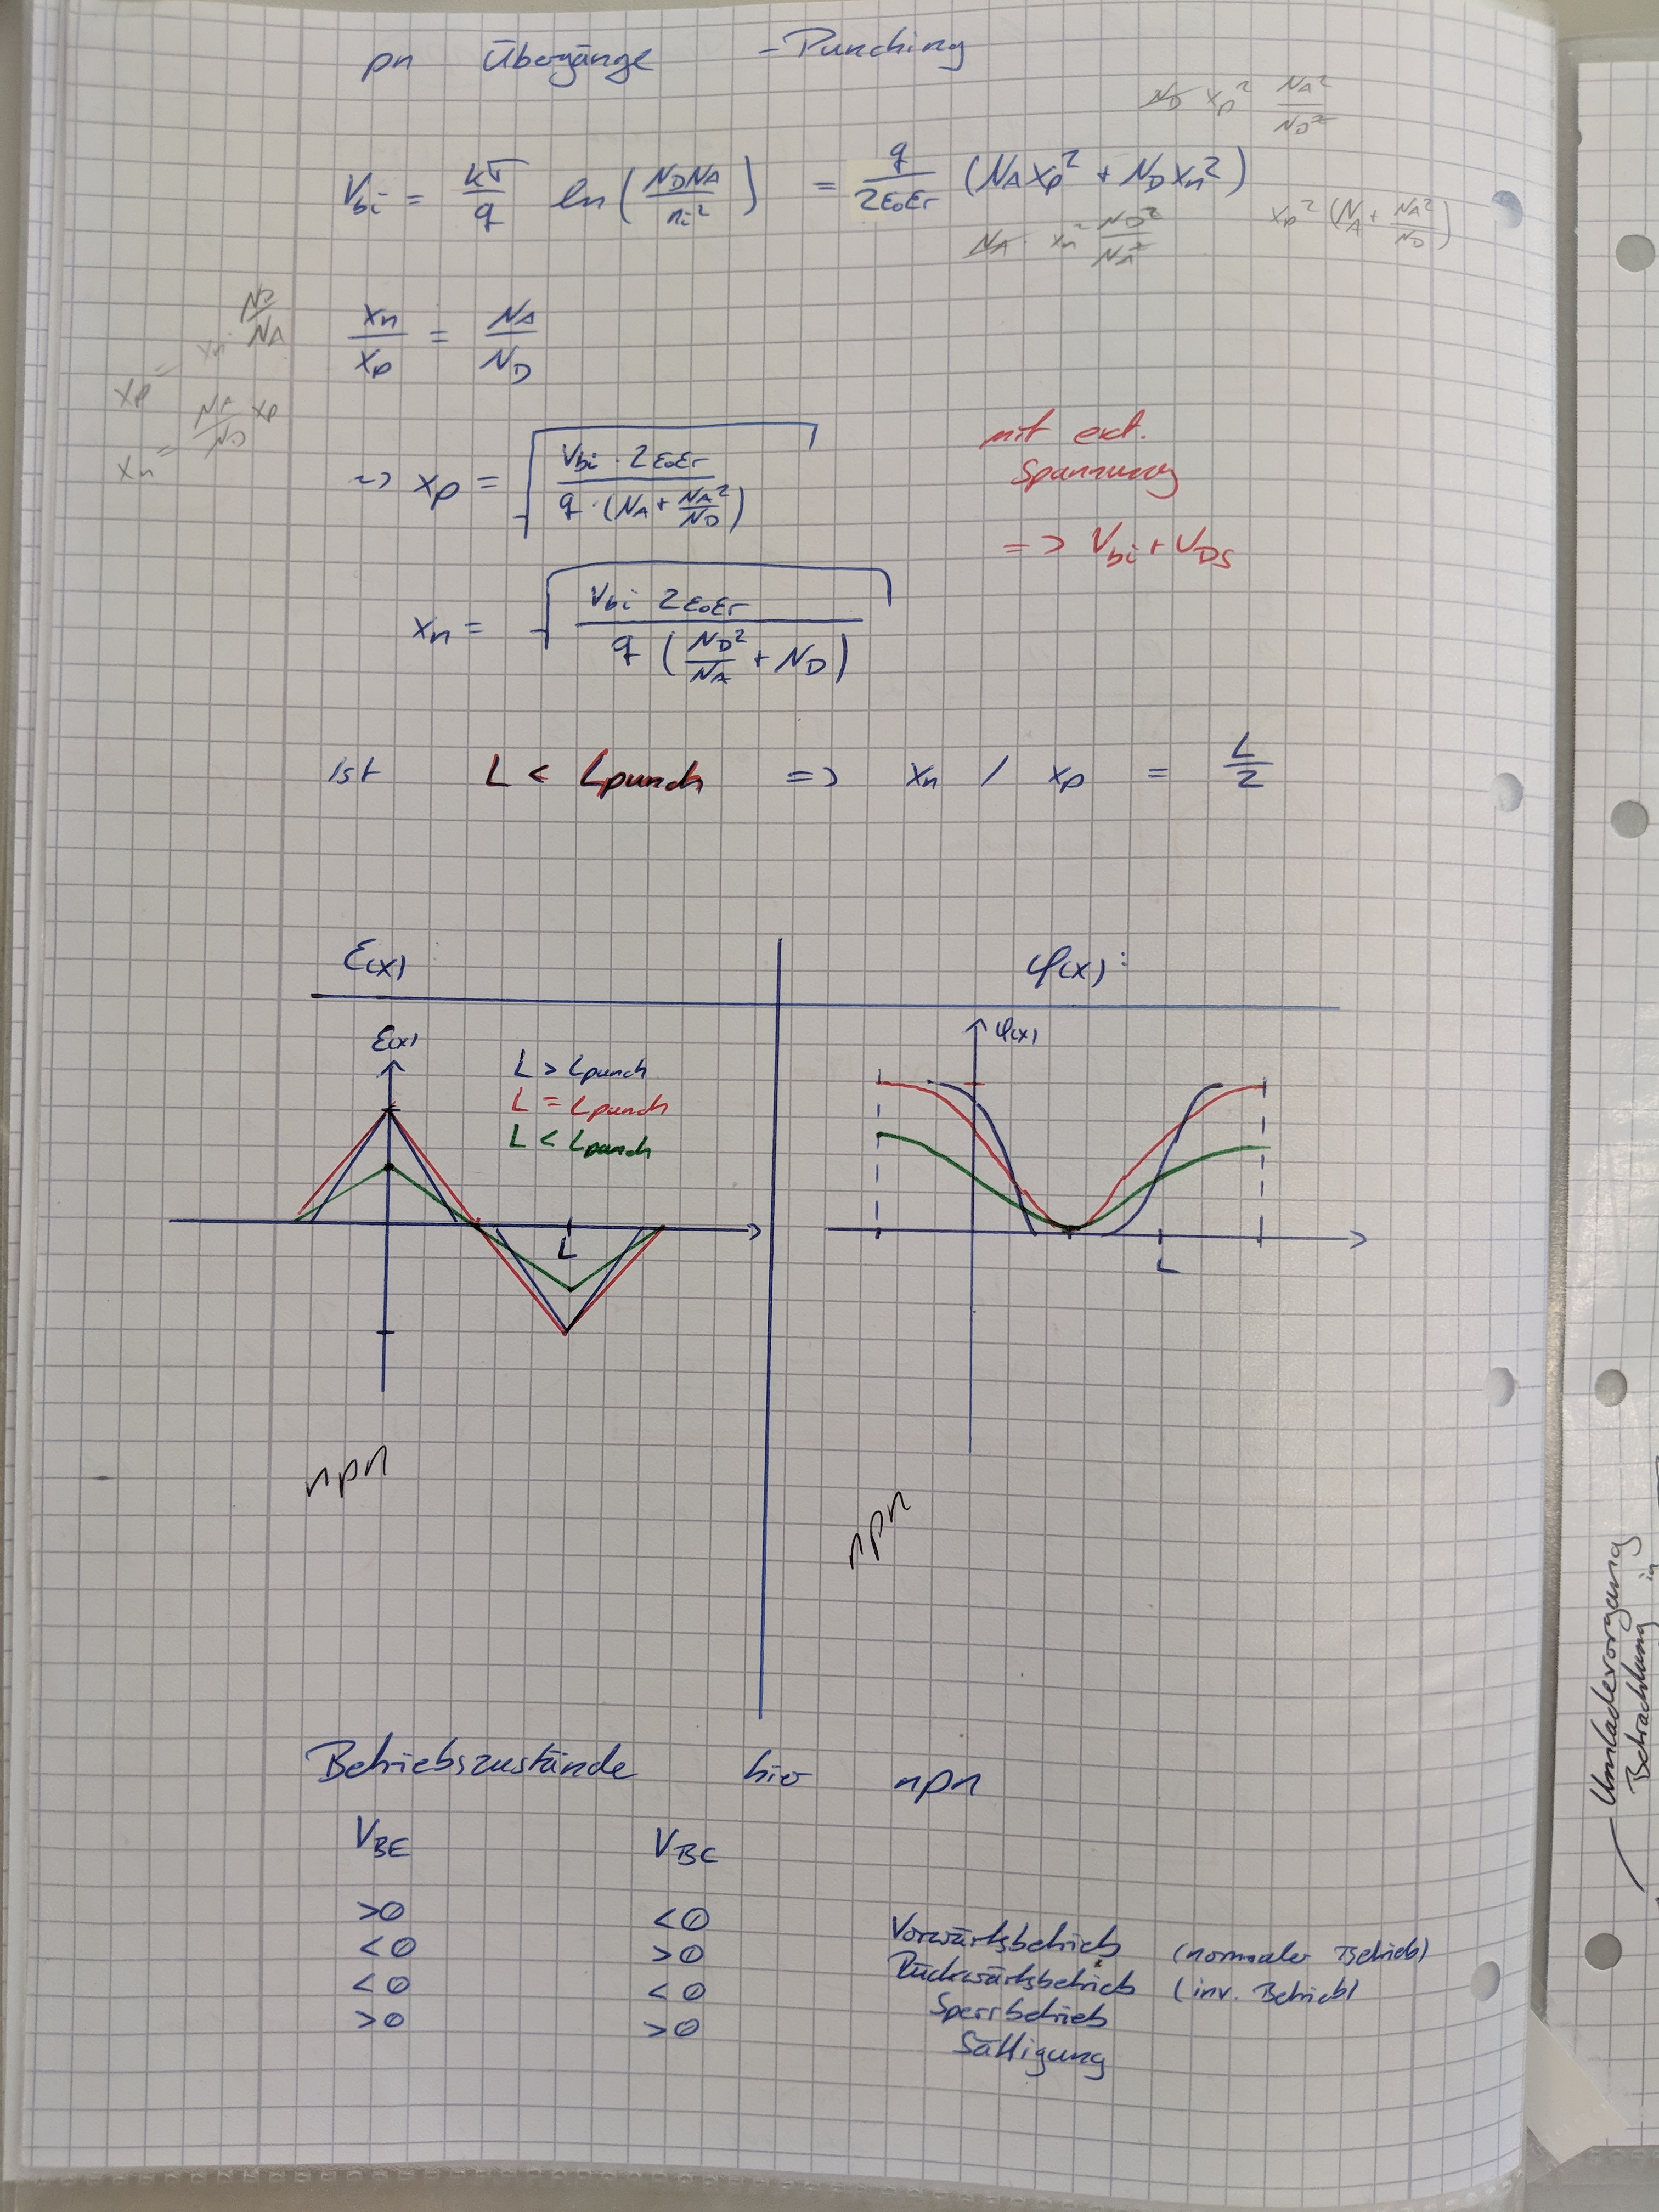 pn Übergänge - Punching
N̶D̶ xp² NA²/ND²
Vbi = kT/q ln(NDNA/ni²) = q/2ε₀εr (NAxp² + NDxn²)
N̶A̶ · xn² ND²/NA²
xp² (NA + NA²/ND)
xp = xn · ND/NA
xn = NA/ND xp
xn/xp = NA/ND
mit ext.
Spannung
=> Vbi + UDS
~> xp = √(Vbi · 2ε₀εr / q · (NA + NA²/ND))
xn = √(Vbi 2ε₀εr / q (ND²/NA + ND))
ist L < Lpunch => xn / xp = L/2
ε(x) φ(x):
ε(x)
L > Lpunch
L = Lpunch
L < Lpunch
L
npn
φ(x)
L
npn
Betriebszustände hier npn
VBE VBC
>0 <0 Vorwärtsbetrieb (normaler Betrieb)
<0 >0 Rückwärtsbetrieb (inv. Betrieb)
<0 <0 Sperrbetrieb
>0 >0 Sättigung
Umladevorgang
Betrachtung
in